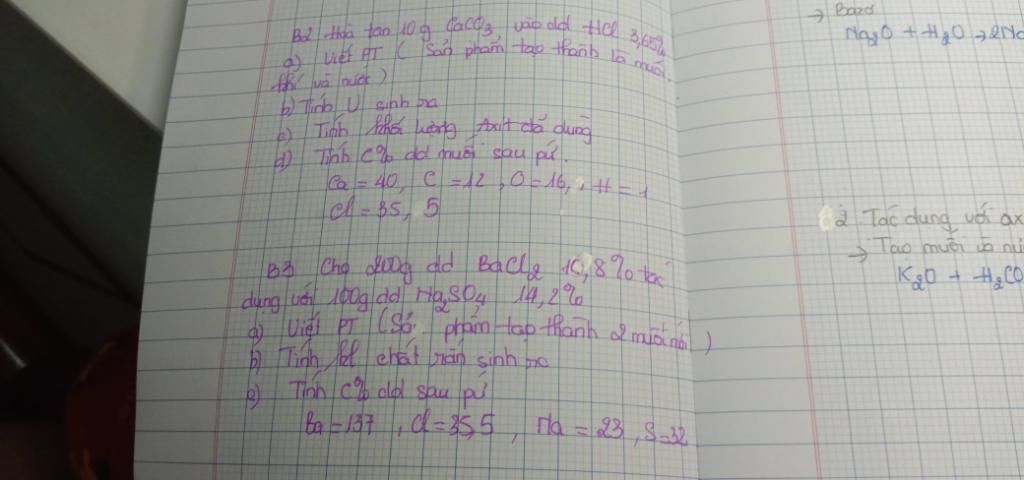 B2 Hoà tan 10 g CaCO3 vào dd HCl 3,65%
a) Viết PT ( Sản phẩm tạo thành là muối,
khí và nước )
b) Tính V sinh ra
c) Tính khối lượng Axit đã dùng
d) Tính C% dd muối sau pứ.
Ca = 40, C = 12, O = 16, H = 1
Cl = 35, 5
B3 Cho 200g dd BaCl2 ,8% tác
dụng với 100g dd Na2SO4 14,2%
a) Viết PT ( phẩm tạo thành 2 muối )
b) Tính kl chất rắn sinh ra
c) Tính C% dd sau pứ
Ba = 137, Cl = 35,5, Na = 23, S = 32
→ Bazơ
Na2O + H2O → 2Na
2. Tác dụng với ax
→ Tạo muối và nư
K2O + H2CO